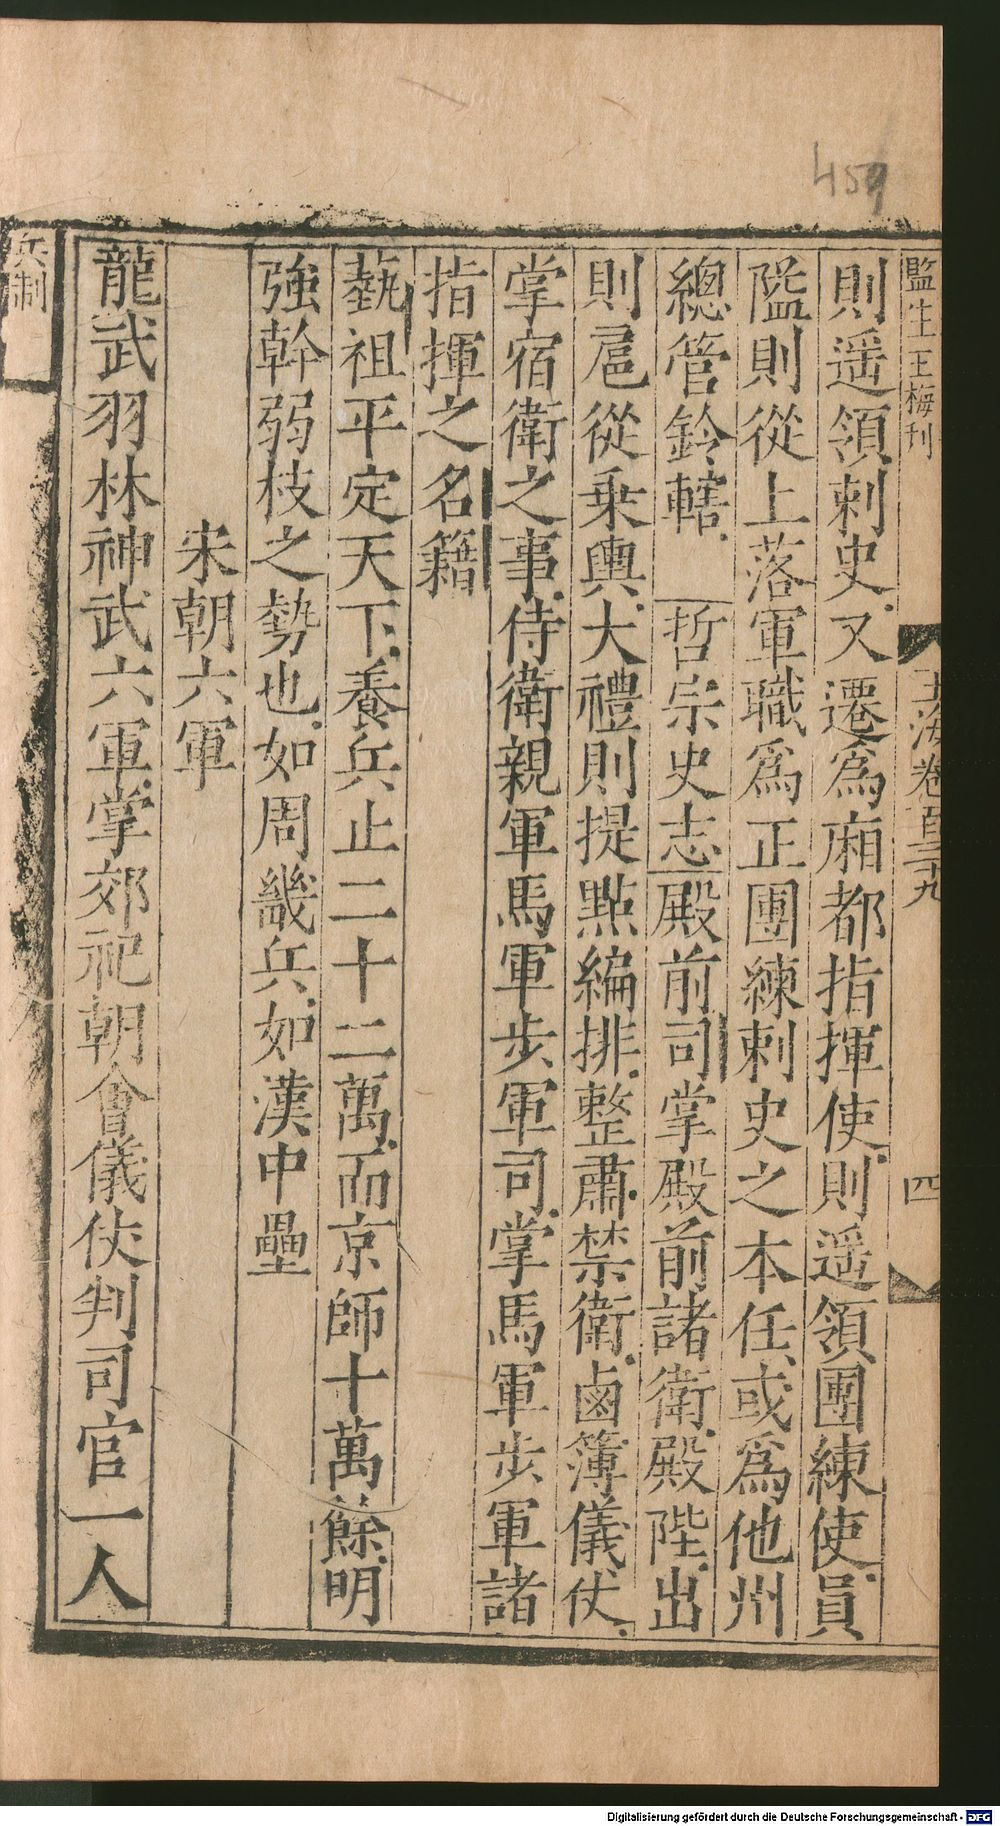 監生王梅刊
玉海卷百三十九
四
則遥領刺史又遷爲廂都指揮使則遥領團練使員
隘則從上落軍職爲正團練刺史之本任或爲他州
總管鈐轄 哲宗史志殿前司掌殿前諸衛殿陛出
則扈從乗輿大禮則提點編排整肅禁衛鹵簿儀仗
掌宿衛之事侍衛親軍馬軍步軍司掌馬軍步軍諸
指揮之名籍
藝祖平定天下養兵止二十二萬而京師十萬餘明
強幹弱枝之勢也如周畿兵如漢中壘
宋朝六軍
龍武羽林神武六軍掌郊祀朝會儀仗判司官一人
兵制
459
Digitalisierung gefördert durch die Deutsche Forschungsgemeinschaft - DFG